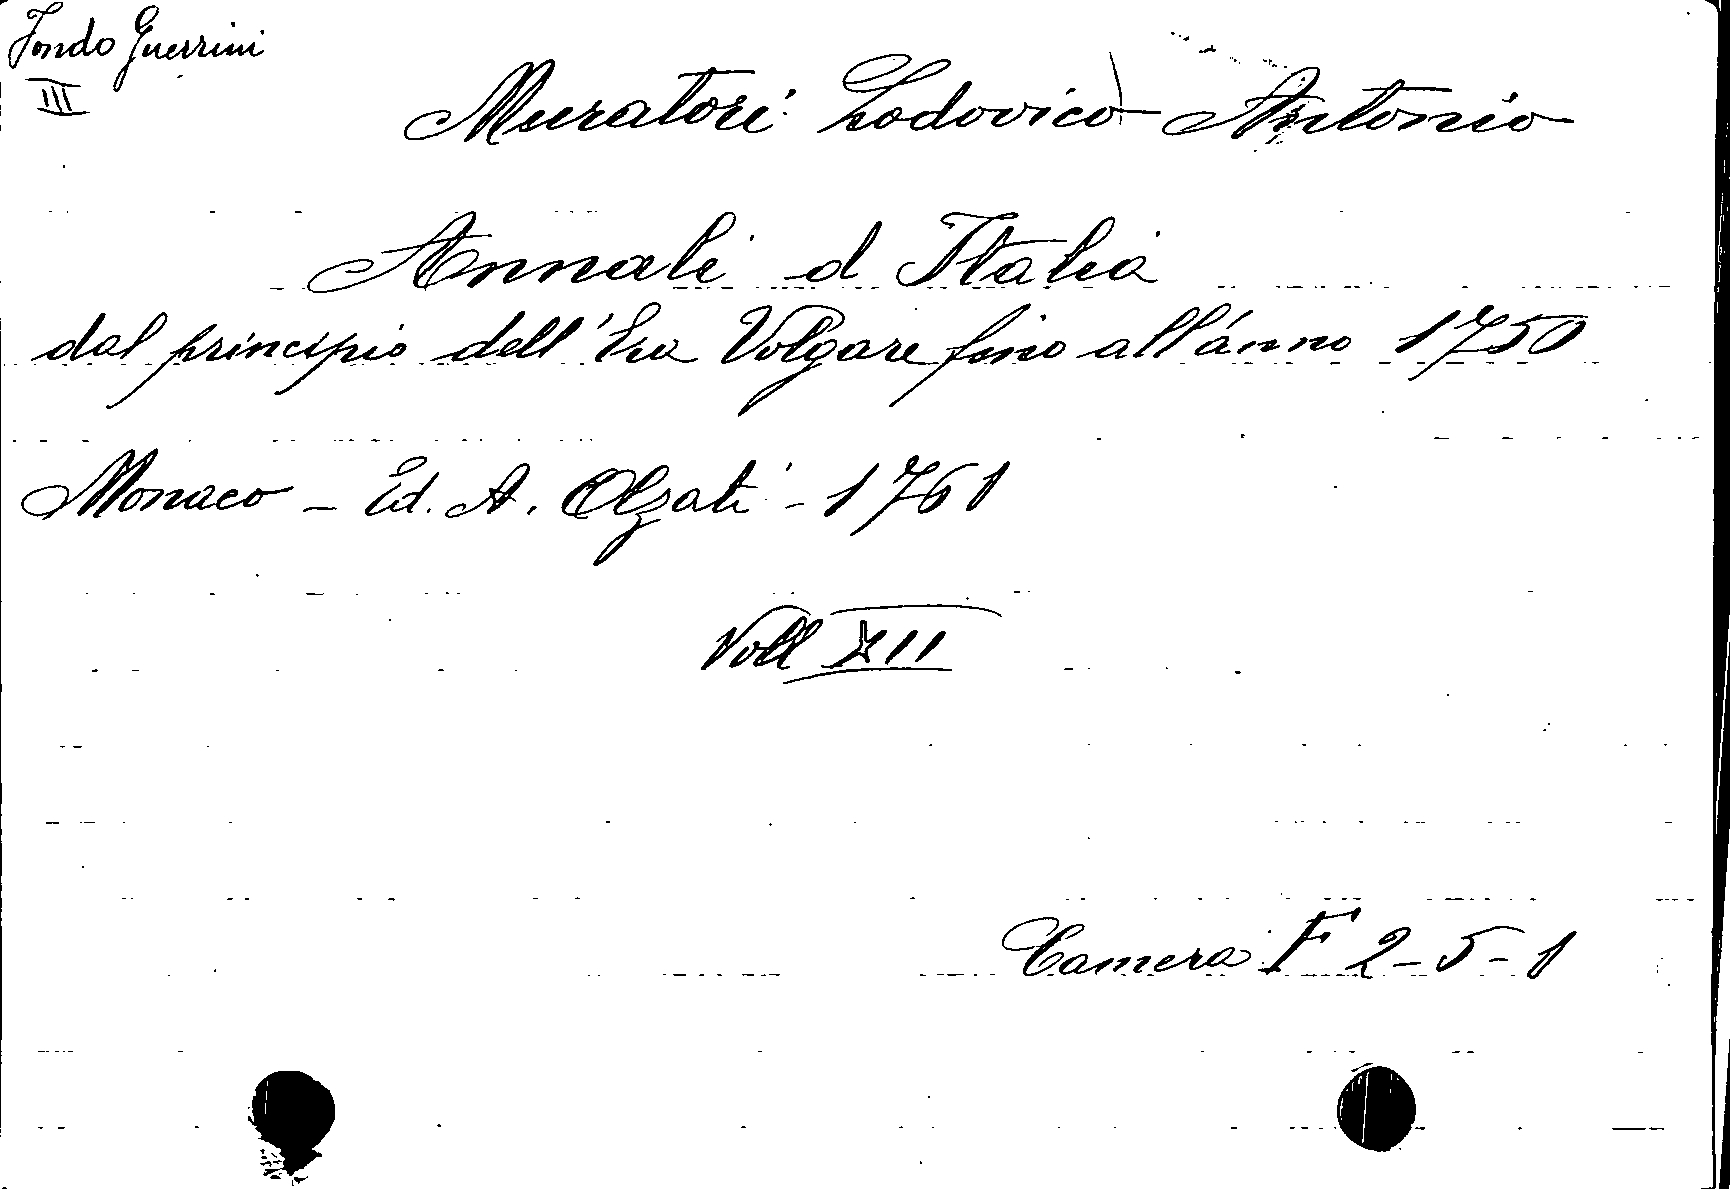 Fondo Guerrini
III
Muratori Lodovico Antonio
Annali d Italia
dal principio dell'Era Volgare fino all'anno 1750
Monaco - Ed. A. Olzati - 1761
Voll XII
Camera F 2-5-1